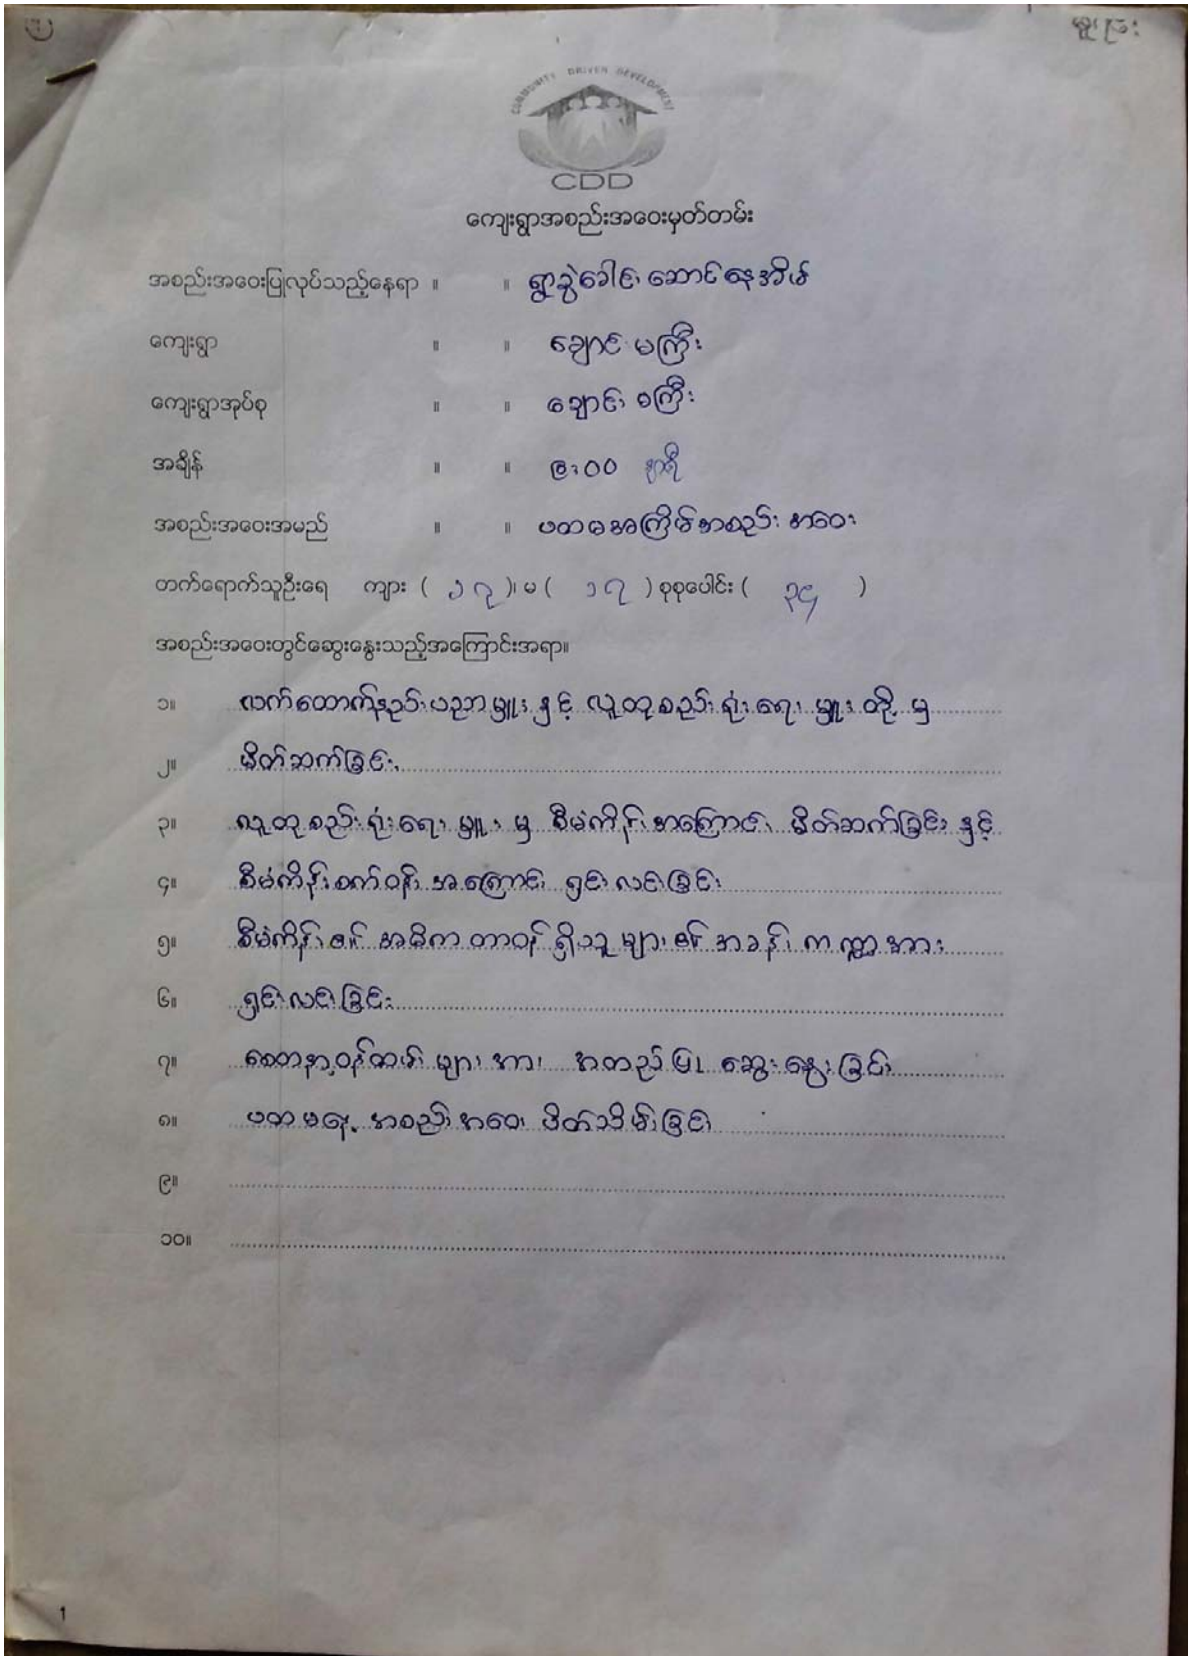 (၁)
မူရင်း
COMMUNITY DRIVEN DEVELOPMENT
CDD
ကျေးရွာအစည်းအဝေးမှတ်တမ်း
အစည်းအဝေးပြုလုပ်သည့်နေရာ ။ ။ ရွာခွဲခေါင်းဆောင်နေအိမ်
ကျေးရွာ ။ ။ ချောင်းမကြီး
ကျေးရွာအုပ်စု ။ ။ ချောင်းမကြီး
အချိန် ။ ။ ၉:၀၀ နာရီ
အစည်းအဝေးအမည် ။ ။ ပထမအကြိမ်အစည်းအဝေး
တက်ရောက်သူဦးရေ ကျား ( ၁၇ )၊ မ ( ၁၇ ) စုစုပေါင်း ( ၃၄ )
အစည်းအဝေးတွင်ဆွေးနွေးသည့်အကြောင်းအရာ။
၁။ လက်ထောက်နည်းပညာမှူးနှင့် လူထုစည်းရုံးရေးမှူးတို့မှ
၂။ မိတ်ဆက်ခြင်း.
၃။ လူထုစည်းရုံးရေးမှူးမှ စီမံကိန်းအကြောင်း မိတ်ဆက်ခြင်းနှင့်
၄။ စီမံကိန်းစက်ဝန်းအကြောင်း ရှင်းလင်းခြင်း
၅။ စီမံကိန်း၏ အဓိကတာဝန်ရှိသူများ၏ အခန်းကဏ္ဍအား
၆။ ရှင်းလင်းခြင်း
၇။ စေတနာ့ဝန်ထမ်းများအား အတည်ပြုဆွေးနွေးခြင်း
၈။ ပထမနေ့ အစည်းအဝေးပိတ်သိမ်းခြင်း
၉။
၁၀။
1